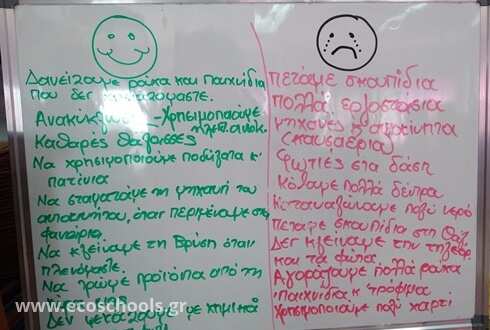 Δανείζουμε ρούχα και παιχνίδια
που δεν
Ανακύκλωση - Χρησιμοποιούμε
Καθαρές θάλασσες
Να χρησιμοποιούμε ποδήλατα κ'
πατίνια
Να σταματάμε τη μηχανή του
αυτοκινήτου, όταν περιμένουμε στα
φανάρια.
Να κλείνουμε τη βρύση όταν
πλενόμαστε.
Να τρώμε προϊόντα από τη
Δεν χημικά
πετάμε σκουπίδια
πολλά εργοστάσια
μηχανές κ' αυτοκίνητα
(καυσαέρια)
Φωτιές στα δάση
Κόβουμε πολλά δέντρα
Καταναλώνουμε πολύ νερό
Πετάμε σκουπίδια στη θάλ.
Δεν κλείνουμε την τηλεόρ.
και τα φώτα.
Αγοράζουμε πολλά ρούχα
παιχνίδια κ' τρόφιμα
Χρησιμοποιούμε πολύ χαρτί
www.ecoschools.gr